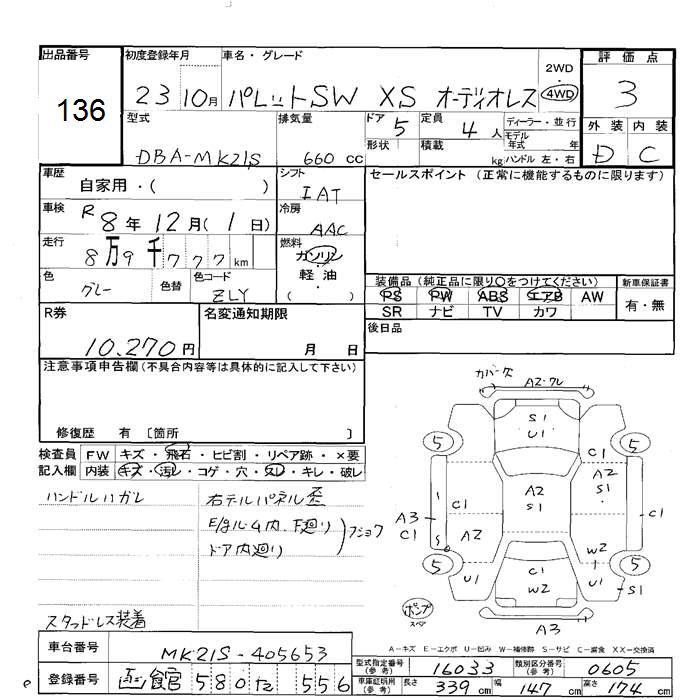 出品番号
136
初度登録年月
23 10月
車名・グレード
パレットSW XS オーディオレス
2WD
・
4WD
評価点
3
外装 内装
D C
型式
DBA-MK21S
排気量
660 cc
ドア
5
形状
定員
4 人
積載
kg
ディーラー・並行
モデル年式 年
ハンドル 左・右
車歴
自家用・( )
車検
R 8年 12月( 1 日)
走行
8万9千777km
色
グレー
色替
色コード
ZLY
シフト
IAT
冷房
AAC
燃料
ガソリン
・
軽油
( )
セールスポイント (正常に機能するものに限ります)
装備品 (純正品に限り○をつけてください)
PS PW ABS エアB AW
SR ナビ TV カワ
新車保証書
有・無
後日品
R券
10,270円
名変通知期限
月 日
注意事項申告欄(不具合内容等は具体的に記入して下さい)
修復歴 有 〔箇所 〕
検査員記入欄
FW キズ・飛石・ヒビ割・リペア跡・×要
内装 キズ・汚レ・コゲ・穴・スレ・キレ・破レ
ハンドルハガレ
右テールパネル歪
E/gルーム内、下廻り
ドア内廻り
フショク
スタッドレス装着
カバー欠
A2・ワレ
S1
U1
5
5
C1
A2
S1
A2
S1
1
C1
A3
C1
A2
S
C1
W2
5
5
U1
C1
W2
U1
S1
A3
ポンプ
スペア
A-キズ E-エクボ U-凹み W-補修跡 S-サビ C-腐食 XX-交換済
車台番号
MK21S-405653
登録番号
580 た 556
型式指定番号
(参考)
16033
類別区分番号
(参考)
0605
車庫証明用
(参考)
長さ 339 cm
幅 147 cm
高さ 174 cm